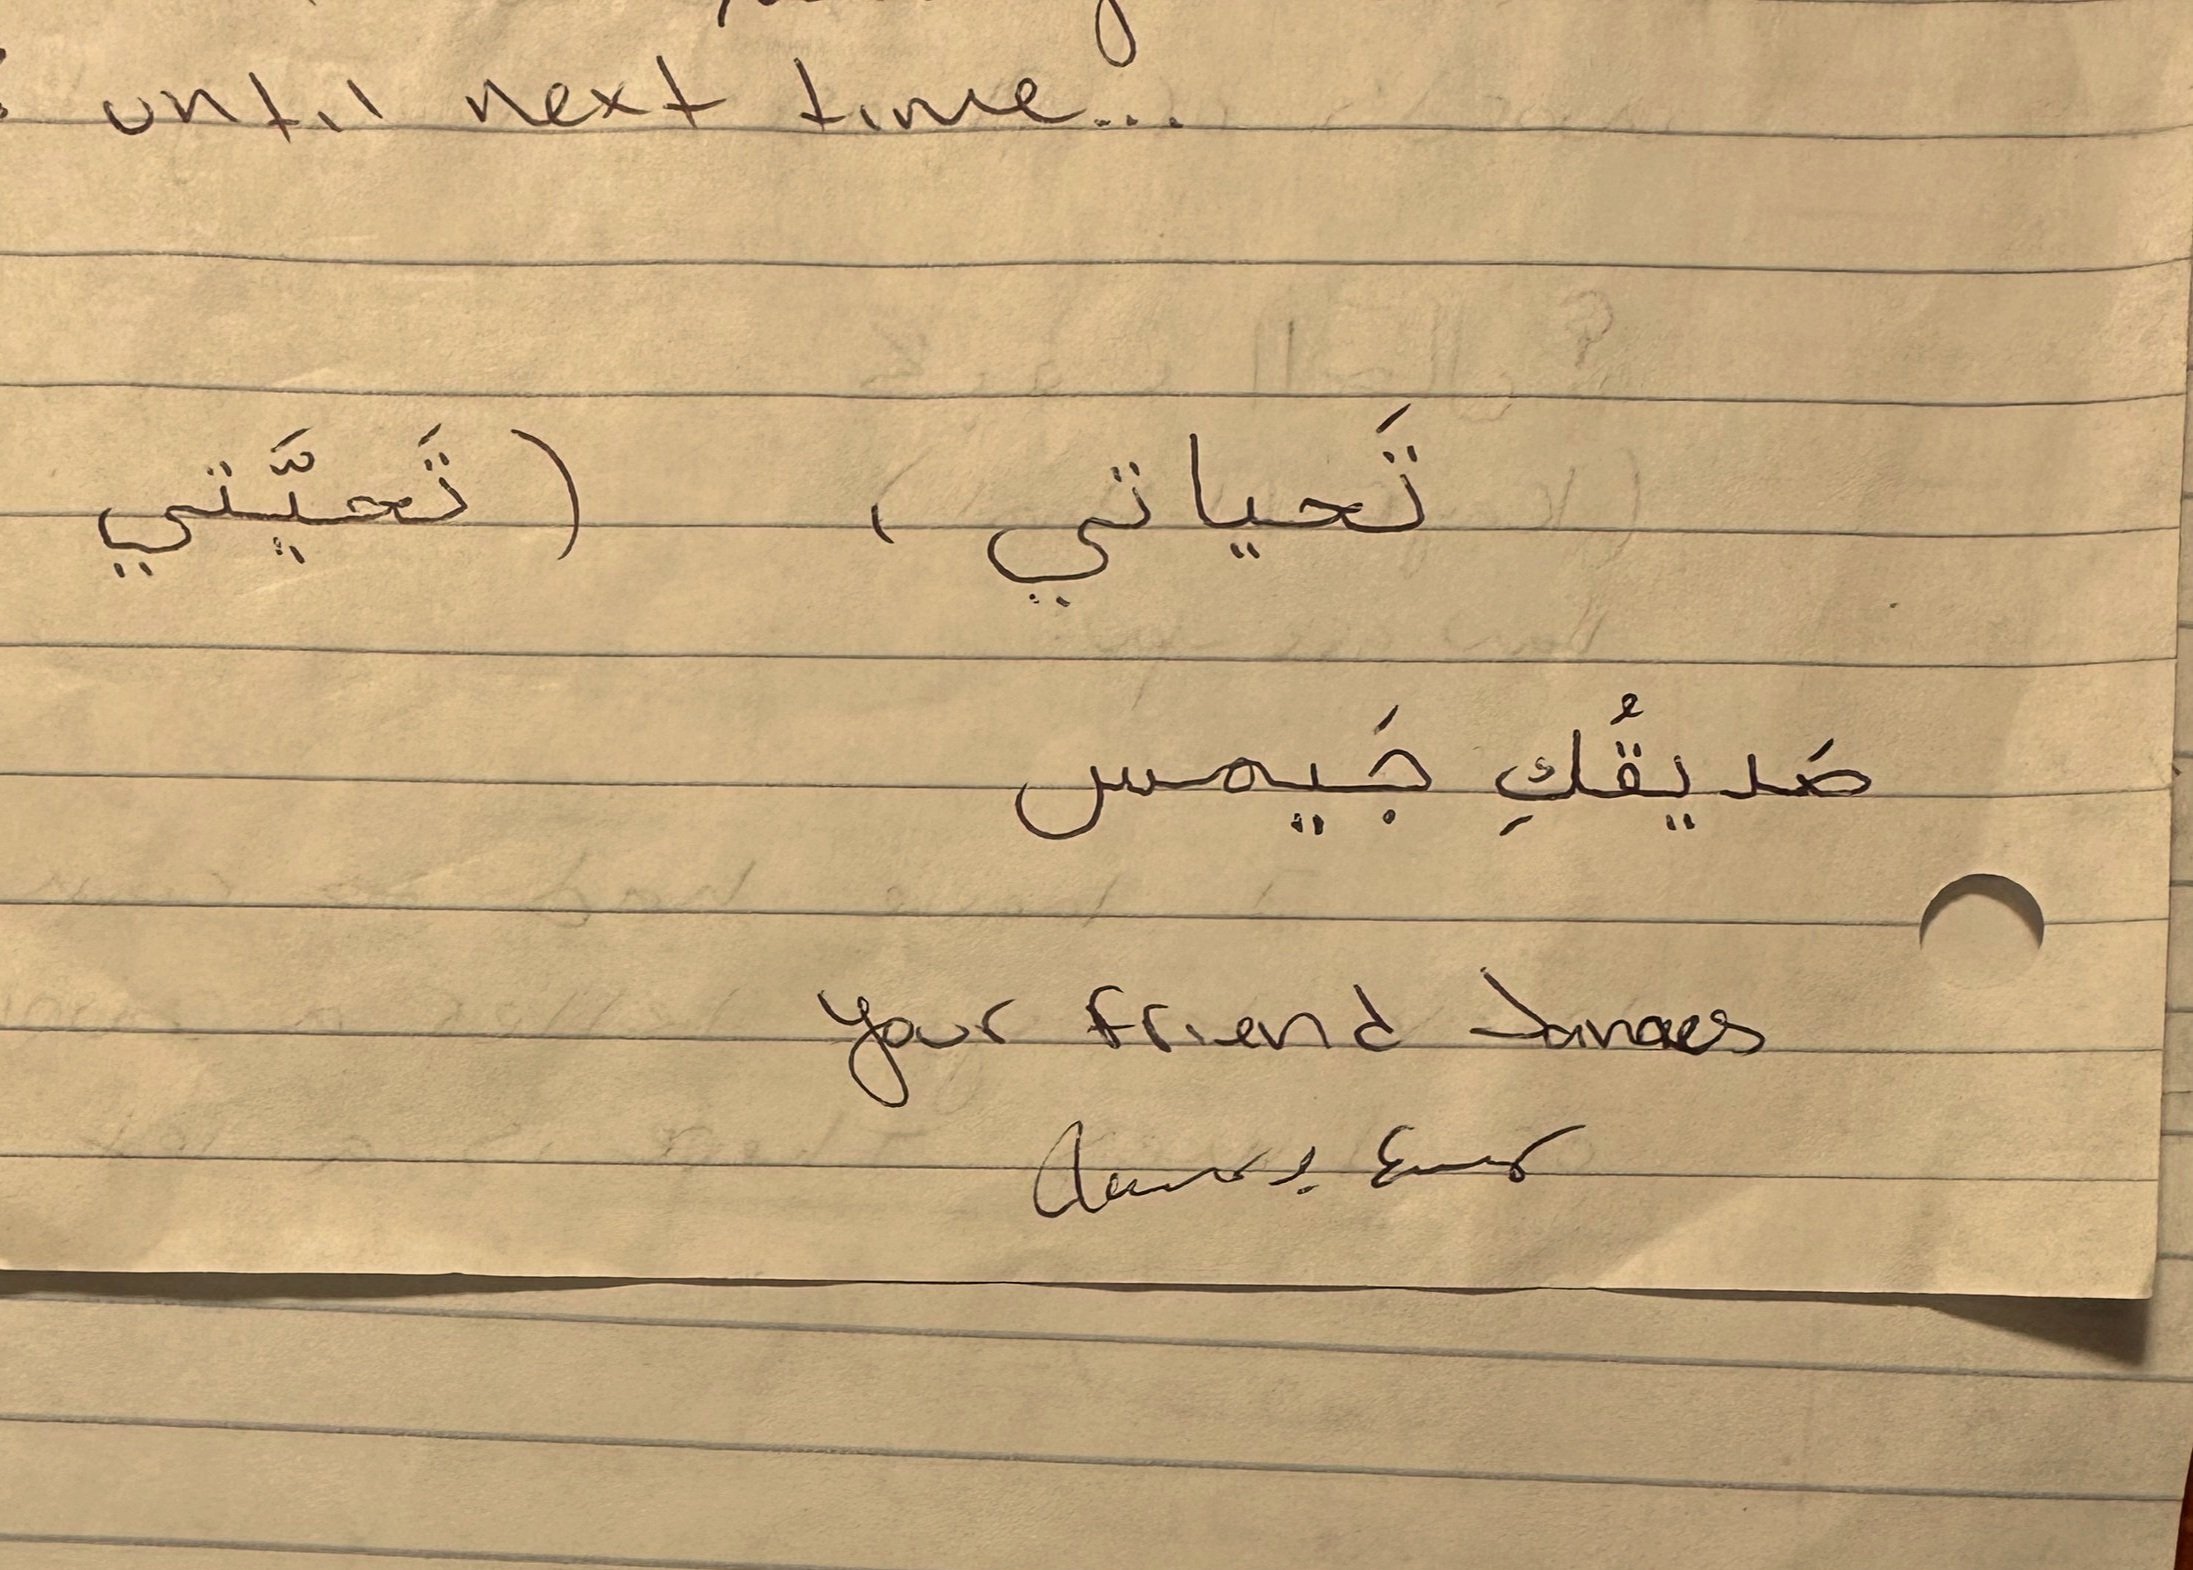 until next time...
تَحياتي ، (تَحيَّتي
صَديقُكِ جَيمس
your friend James